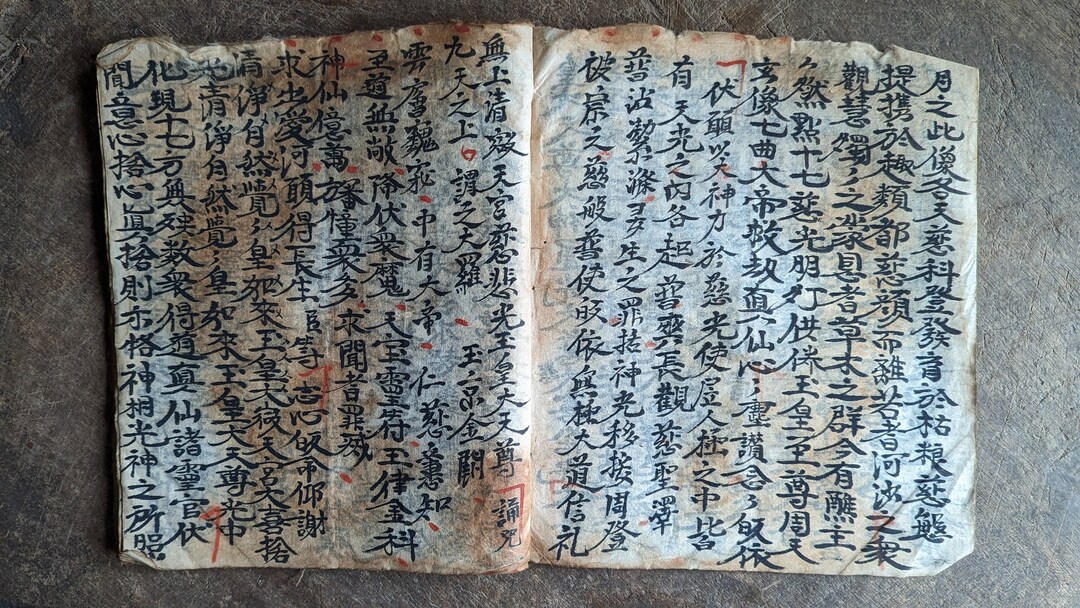 月之此像冬天慈科登發育於枯根慈態
提攜於趣類都慈顏而離若者河沙之衆
觀慧燭〻之蒙昧者草木之群今有醮主
然點十七慈光明灯供養玉皇至尊周天
玄像七曲大帝救劫真仙心〻靈讃言〻皈依
伏願以大神力於慈光使居人極之中皆
有天光之內各起普齊長觀慈聖澤
普沾潔滌多生之罪括神光移接周登
被宗之慈般普使皈依無極大道信礼
無上清寂天宮慈悲光玉皇大天尊 誦咒
九天之上 謂之大羅 玉京金闕
雲層巍峩 中有大帝 仁慈憲知
丑道無敵 降伏衆魔 天宝靈符 玉律金科
神仙億萬 旛幢衆多 求聞者罪滅
求出愛河 願得長生 臣等志心皈命仰謝
清淨自然覺〻皇如來玉皇大彼天宮大喜捨
光清淨自然覺〻皇如來玉皇大天尊光中
化現十七万無殃数衆得道真仙諸靈官伏
聞立意心捨心真捨則亦格神相光神之所照